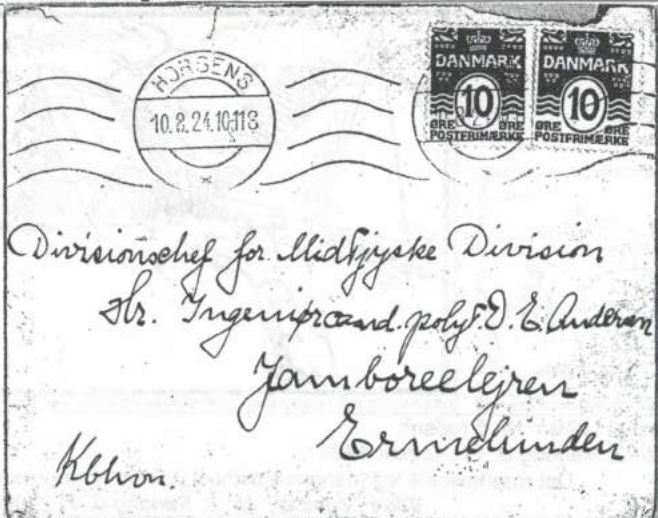 HORSENS
10.8.24.10-11
DANMARK
10
ØRE ØRE
POSTFRIMÆRKE
DANMARK
10
ØRE ØRE
POSTFRIMÆRKE
Divisionschef for Midtjyske Division
Hr. Ingeniør cand. polyt. D. E. Andersen
Jamboreelejren
Ermelunden
Kbhvn.